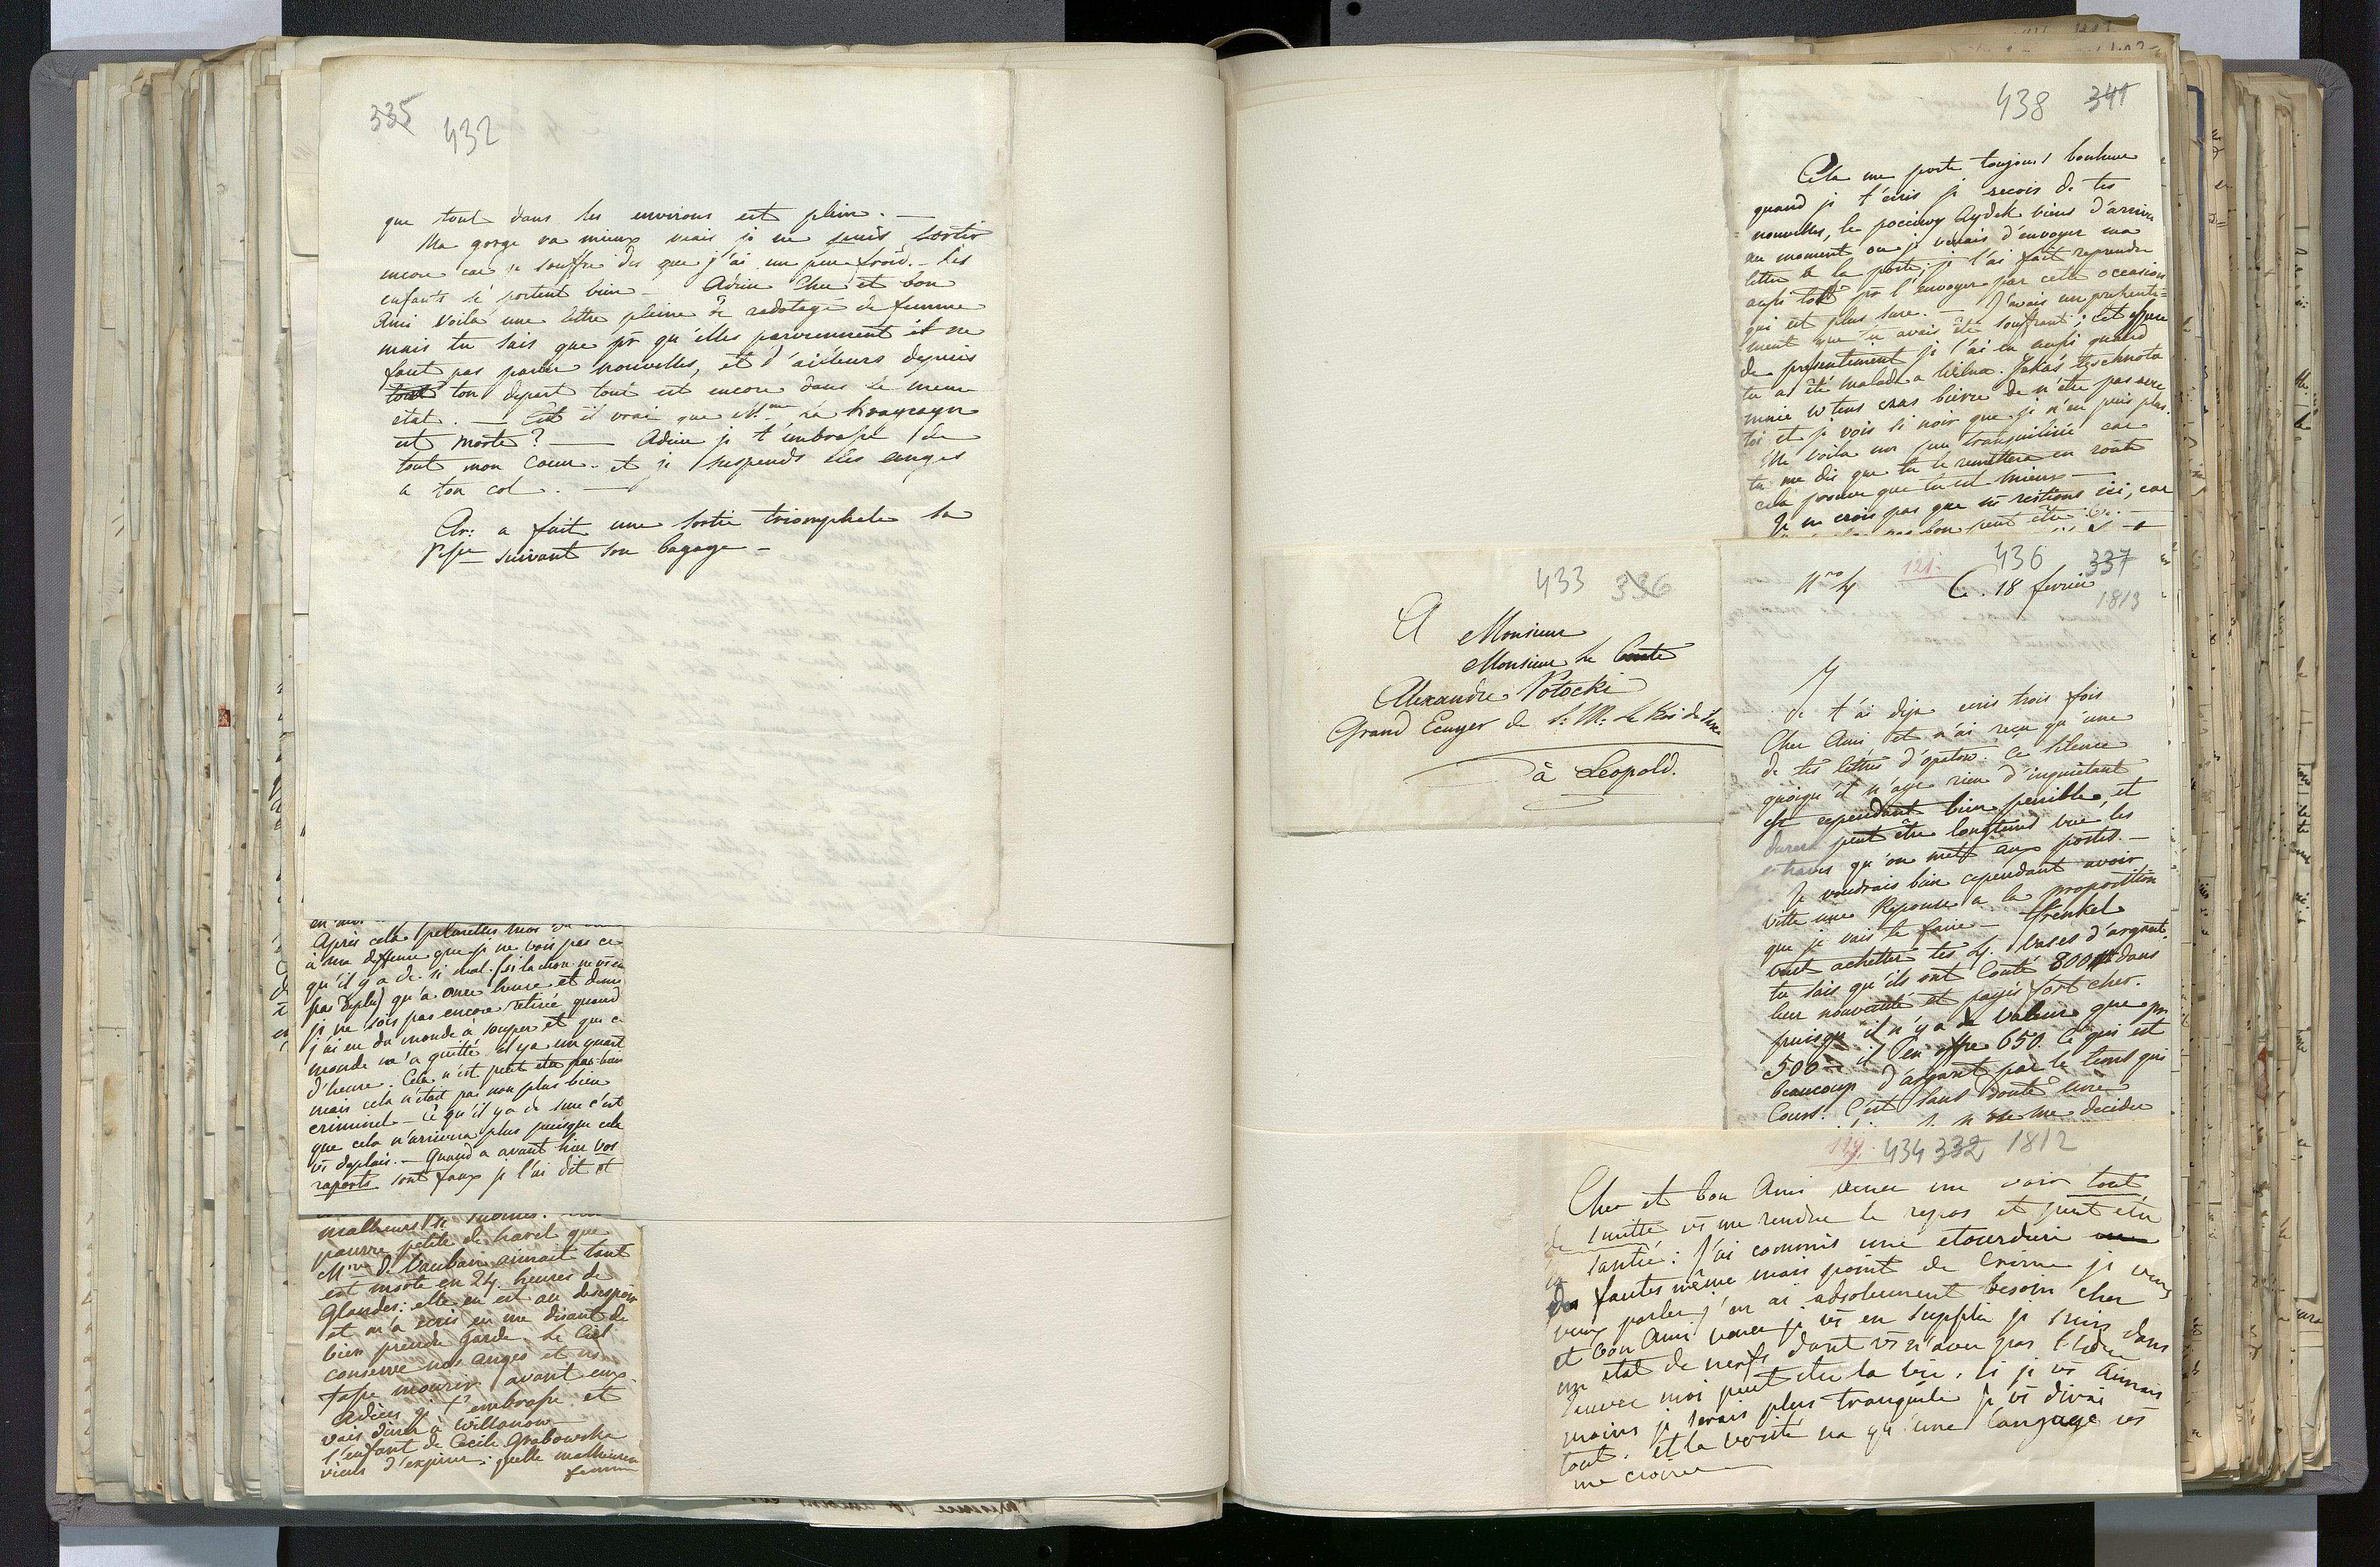 335 432
que tout dans les environs est plein. —
Ma gorge va mieux mais je ne puis sortir
encore car je souffre dès que j'ai un peu froid. – Les
enfants se portent bien – Adieu Cher et bon
Ami voila une lettre pleine de radotage de femme
mais tu sais que pr qu'elles parviennent il ne
faut pas parler nouvelles, et d'ailleurs depuis
tout ton depart tout est encore dans le meme
etat. — Est il vrai que Mme la
est morte? — Adieu je t'embrasse de
tout mon cœur. et je suspends les anges
a ton col. —
Ar: a fait une sortie triomphale sa
suivant son bagage –
Après cela
à ma deffense que je ne vois pas ce
qu'il y a de si mal. (si la chose ne vs eu
pas deplu) qu'à onze heure et demi
je ne sois pas encore retirée quand
j'ai eu du monde à souper et que ce
monde m'a quitté il y a un quart
d'heure. Cela n'est peut etre pas bien
mais cela n'était pas non plus bien
criminel – Ce qu'il y a de sure c'est
que cela n'arrivera plus puisque cela
vs deplais. – Quand a avant hier vos
raports sont faux je l'ai dit et
malheurs
pauvre petite de havel que
Mme de Vauban aimait tant
est morte en 24. heures de
Glandes: elle en est au desespoir
et m'a ecris en me disant de
bien prendre garde. Le Ciel
conserve nos anges et ns
fasse mourir avant eux.
Adieu je t'embrasse et
vais diner à Willanow –
l'enfant de Cecile Grabowska
viens d'expirer: quelle malheureuse
femme
438 341
Cela me porte toujours bonheur
quand je t'écris je recois de tes
nouvelles, le pocciwy Aydek viens d'arriver
au moment ou je venais d'envoyer ma
lettre à la poste; je l'ai fait reprendre
aussi tot pr l'envoyer par cette occasion
qui est plus sure. – J'avais un pressenti=
ment que tu avais été souffrant; cet espece
de pressentiment je l'ai eu aussi quand
tu a été malade a Wilna. Jakas tęschnota
mnie w tens czas bierze de n'être pas avec
toi et je vois si noir que je n'en puis plus.
Me voila un peu tranquilisée car
tu me dis que tu te remettera en route
cela prouve que tu est mieux –
Je ne crois pas que ns restions ici, car
433 336
A Monsieur
Monsieur le Comte
Alexandre Potocki
Grand Ecuyer de S: M: le Roi de Saxe
à Leopold.
121. 436 337
Nro 4 Ce. 18 fevrier
1813
Je t'ai deja ecris trois fois
Cher Ami et n'ai reçu qu'une
de tes lettres d'opatow. Ce silence
quoiqu'il n'aye rien d'inquietant
est cependant bien penible, et
durera peut être longtems vue les
entraves qu'on met aux postes. –
Je voudrais bien cependant avoir
vitte une Reponse a la proposition
que je vais te faire – Frenkel
veut achetter tes 4. vases d'argent.
tu sais qu'ils ont couté 800# dans
leur nouveauté et payés fort cher.
puisqu'il n'y a de valeur que pr
500 – il t'en offre 650. ce qui est
beaucoup d'argent par le tems qui
court. C'est sans doute une
me decider
119. 434 332 1812
Cher et bon Ami venez me voir tout
de suitte vs me rendre le repos et peut etre
la santée: J'ai commis une etourderie
des fautes même mais point de crime je veux
vs parler j'en ai absolument besoin cher
et bon Ami venez je vs en supplie je suis dans
un etat de nerfs dont vs n'avez pas l'idée
sauvez moi peut etre la vie. si je vs Aimais
moins je serais plus tranquile je vs dirai
tout. et la verité na qu'une langage vs
me croirez